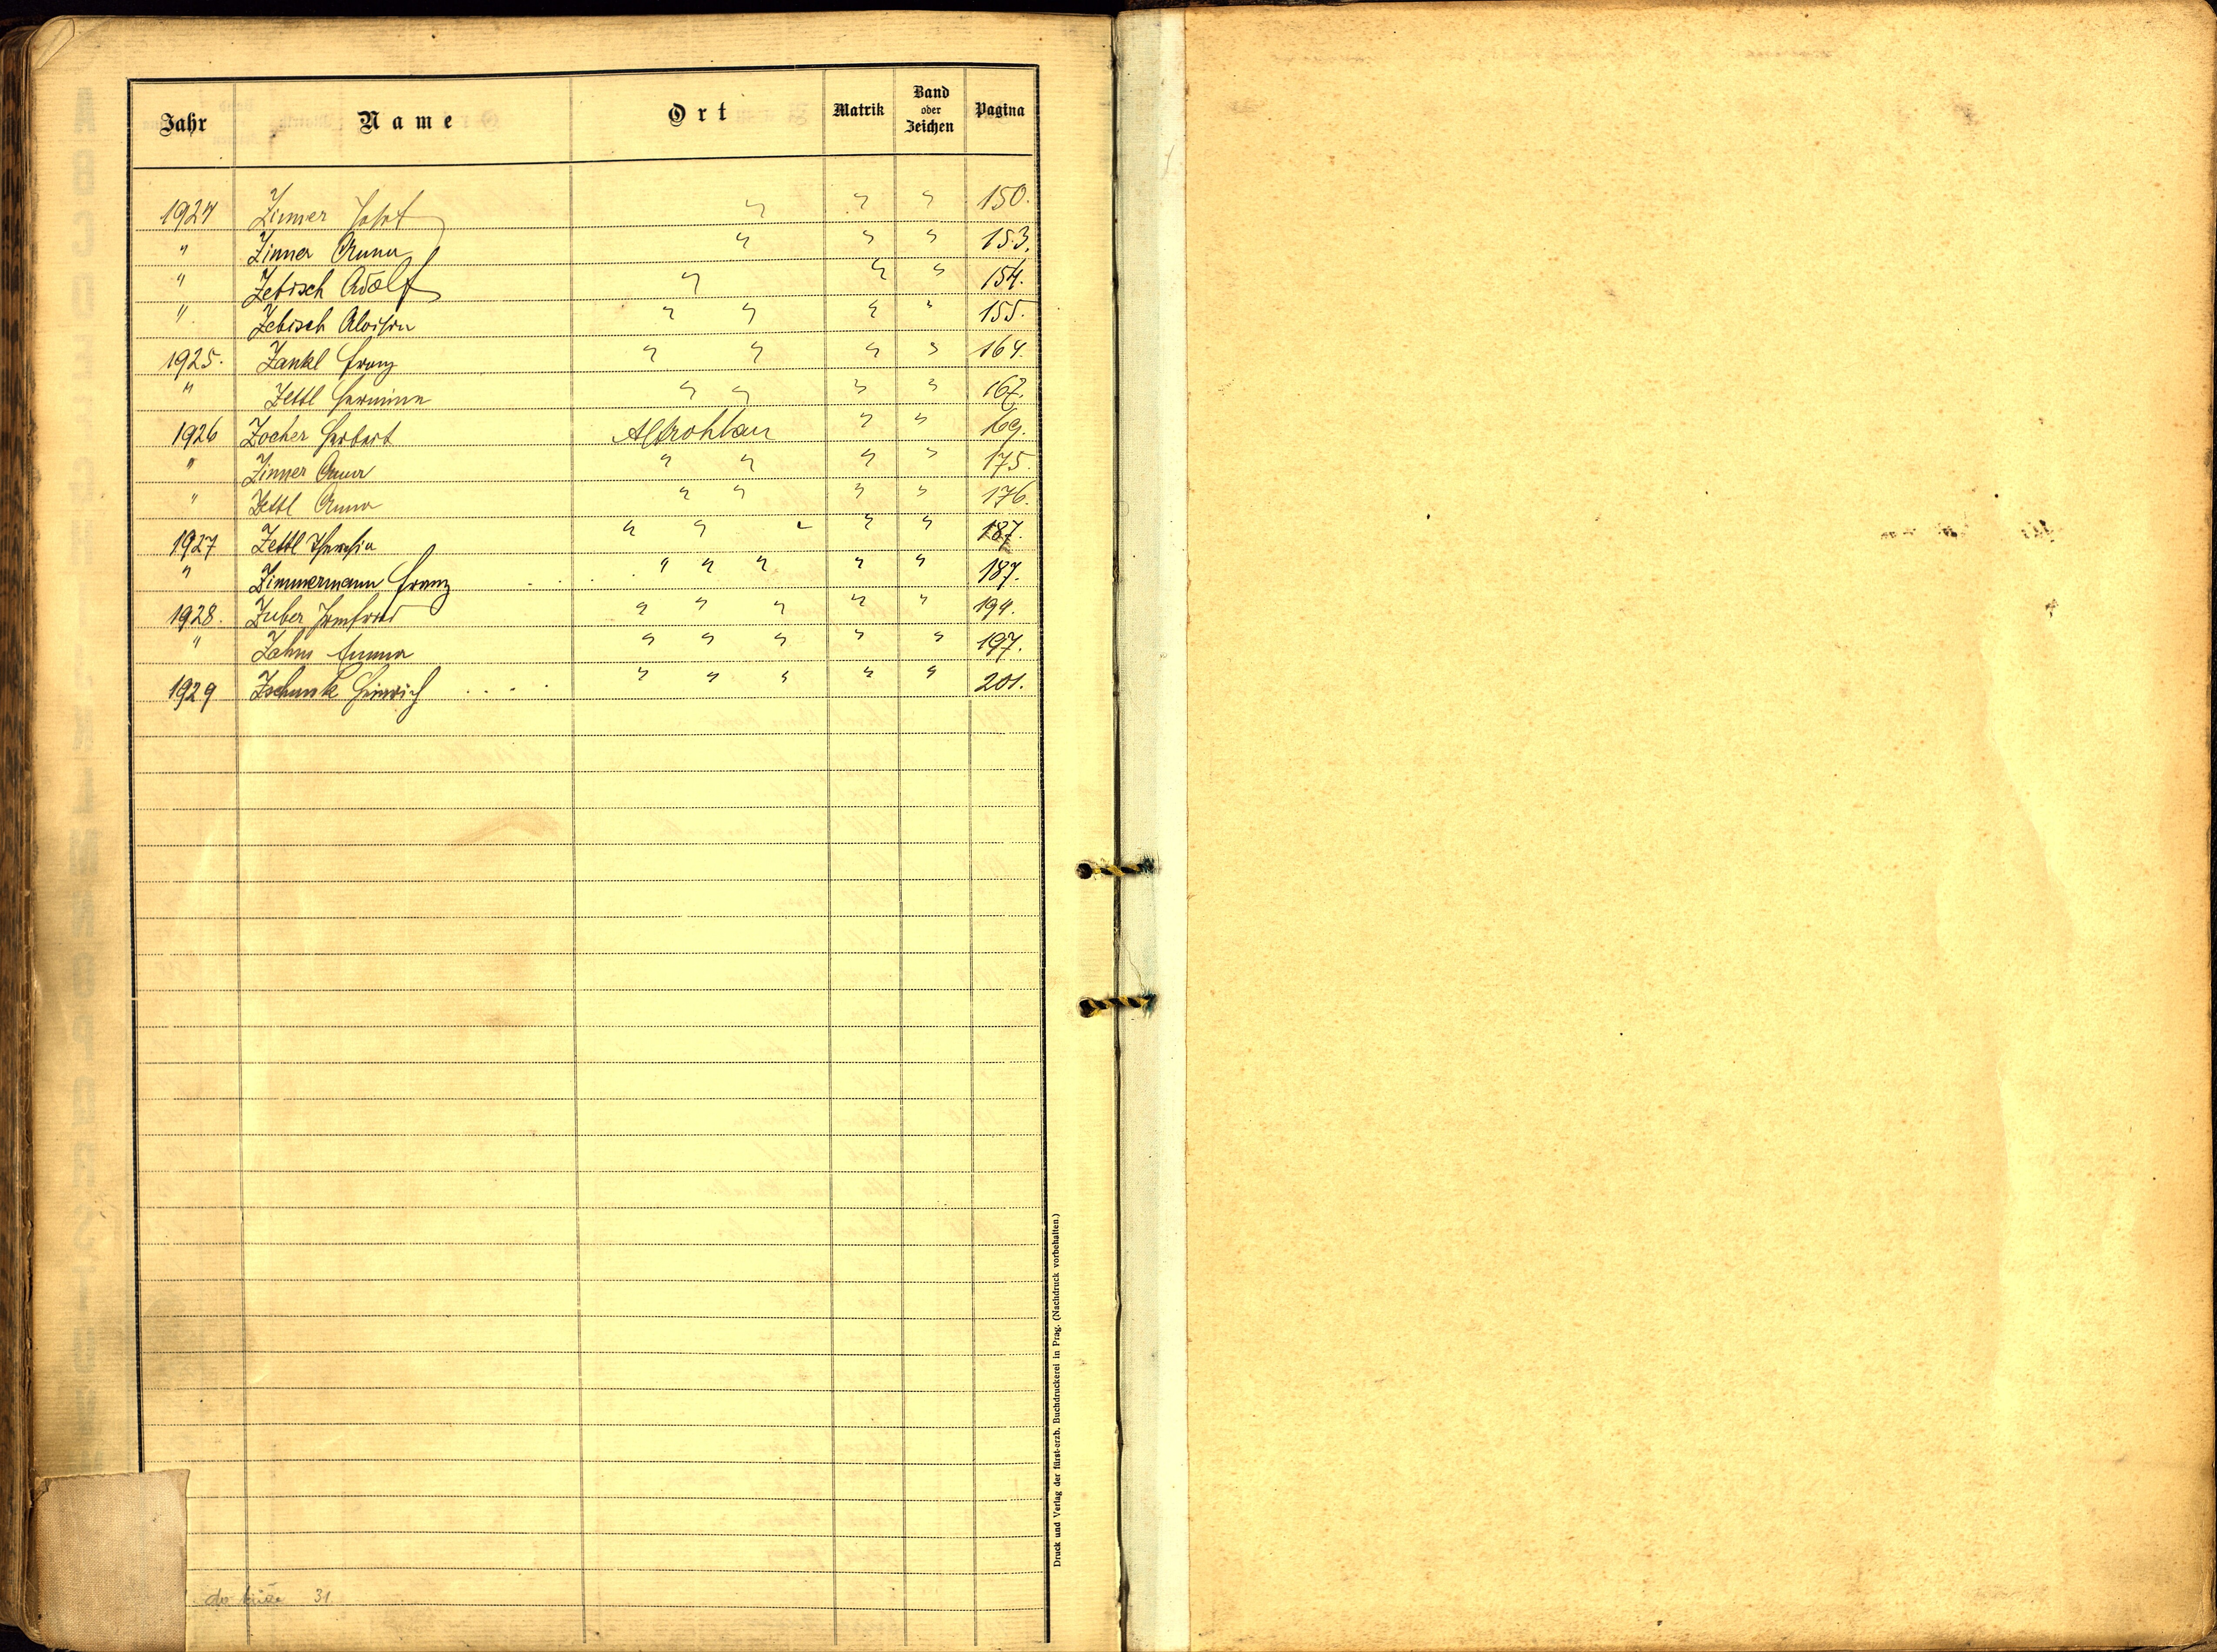 Jahr Name Ort Matrik Band oder Zeichen Pagina
1924 Zinner Josef " " " 150.
" Zinner Anna " " " 153.
" Zebisch Adolf " " " 154.
" Zebisch Aloisia " " " " 155.
1925. Zankl Franz " " " " 164.
" Zettl Hermine " " " " 167.
1926 Zocher Herbert Altrohlau " " 169.
" Zinner Anna " " " " 175.
" Zettl Anna " " " " 176.
1927 Zettl Theresia " " " " " 187.
" Zimmermann Franz " " " " " 187.
1928. Zuber Irmfried " " " " " 194.
" Zahm Emma " " " " " 197.
1929 Zschunk Heinrich " " " " " 201.
31
Druck und Verlag der fürst-erzb. Buchdruckerei in Prag. (Nachdruck vorbehalten.)